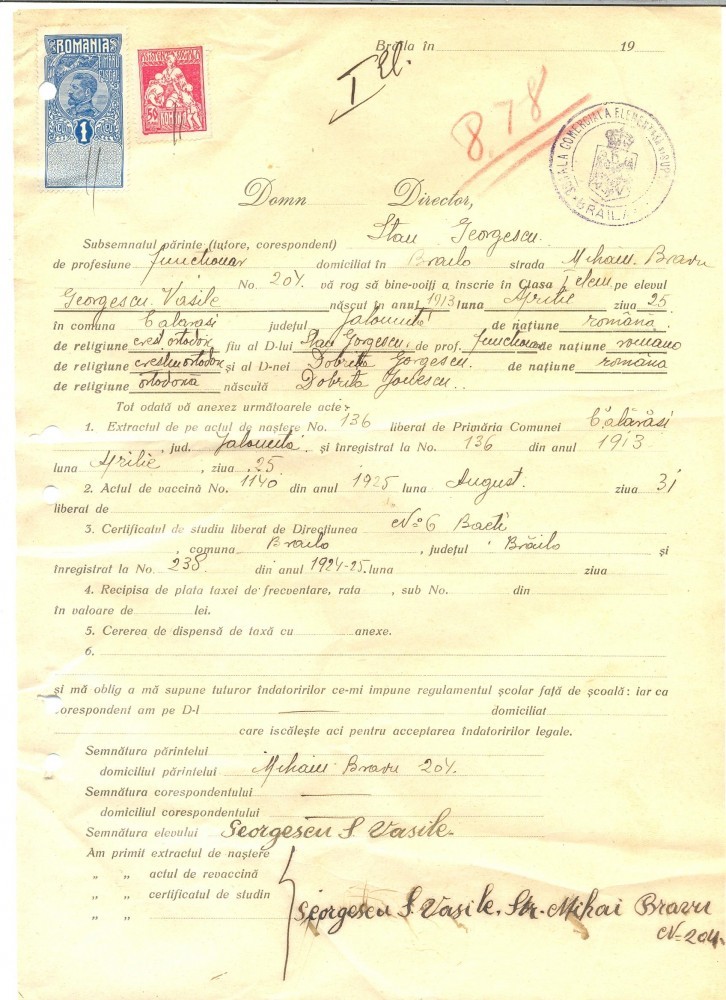 ROMANIA
TIMBRU FISCAL
1
ASISTENTA SOCIALA
50
ROMANIA
Brăila în 19
I El.
8.78
ȘCOALA COMERCIALA ELEMENTARA
BRĂILA
Domn Director,
Subsemnatul părinte (tutore, corespondent) Stan Georgescu.
de profesiune funcționar domiciliat în Braila strada Mihaiu Bravu
No 204. vă rog să bine-voiți a, înscrie în Clasa I elem. pe elevul
Georgescu Vasile născut în anul 1913 luna Aprilie ziua 25
în comuna Călărași județul Jalomița de națiune română.
de religiune crest. ortodox fiu al D-lui Stan Gorgescu, de prof. funcționar de națiune romano
de religiune creștin ortodox și al D-nei Dobrita Gorgescu. de națiune româna
de religiune ortodoxă născută Dobrita Jonescu..
Tot odată vă anexez următoarele acte:
1. Extractul de pe actul de naștere No. 136 liberat de Primăria Comunei Călărăsi
, jud. Jalomita și înregistrat la No. 136 din anul 1913
luna Aprilie , ziua 25.
2. Actul de vaccină No. 1140 din anul 1925 luna August. ziua 31
liberat de
3. Certificatul de studiu liberat de Direcțiunea No 6 Baeti
, comuna Brailo , județul Brăilo și
înregistrat la No. 238 din anul 1924-25. luna ziua
4. Recipisa de plata taxei de frecventare, rata , sub No. din
în valoare de lei.
5. Cererea de dispensă de taxă cu anexe.
6.
și mă oblig a mă supune tuturor îndatoririlor ce-mi impune regulamentul școlar față de școală: iar ca
corespondent am pe D-l domiciliat
care iscălește aci pentru acceptarea îndatoririlor legale.
Semnătura părintelui
domiciliul părintelui Mihaiu Bravu 204.
Semnătura corespondentului
domiciliul corespondentului
Semnătura elevului Georgescu S. Vasile.
Am primit extractul de naștere
„ „ actul de revaccină
„ „ certificatul de studin
„ „
Georgescu S. Vasile, Str. Mihai Bravu
N-204.